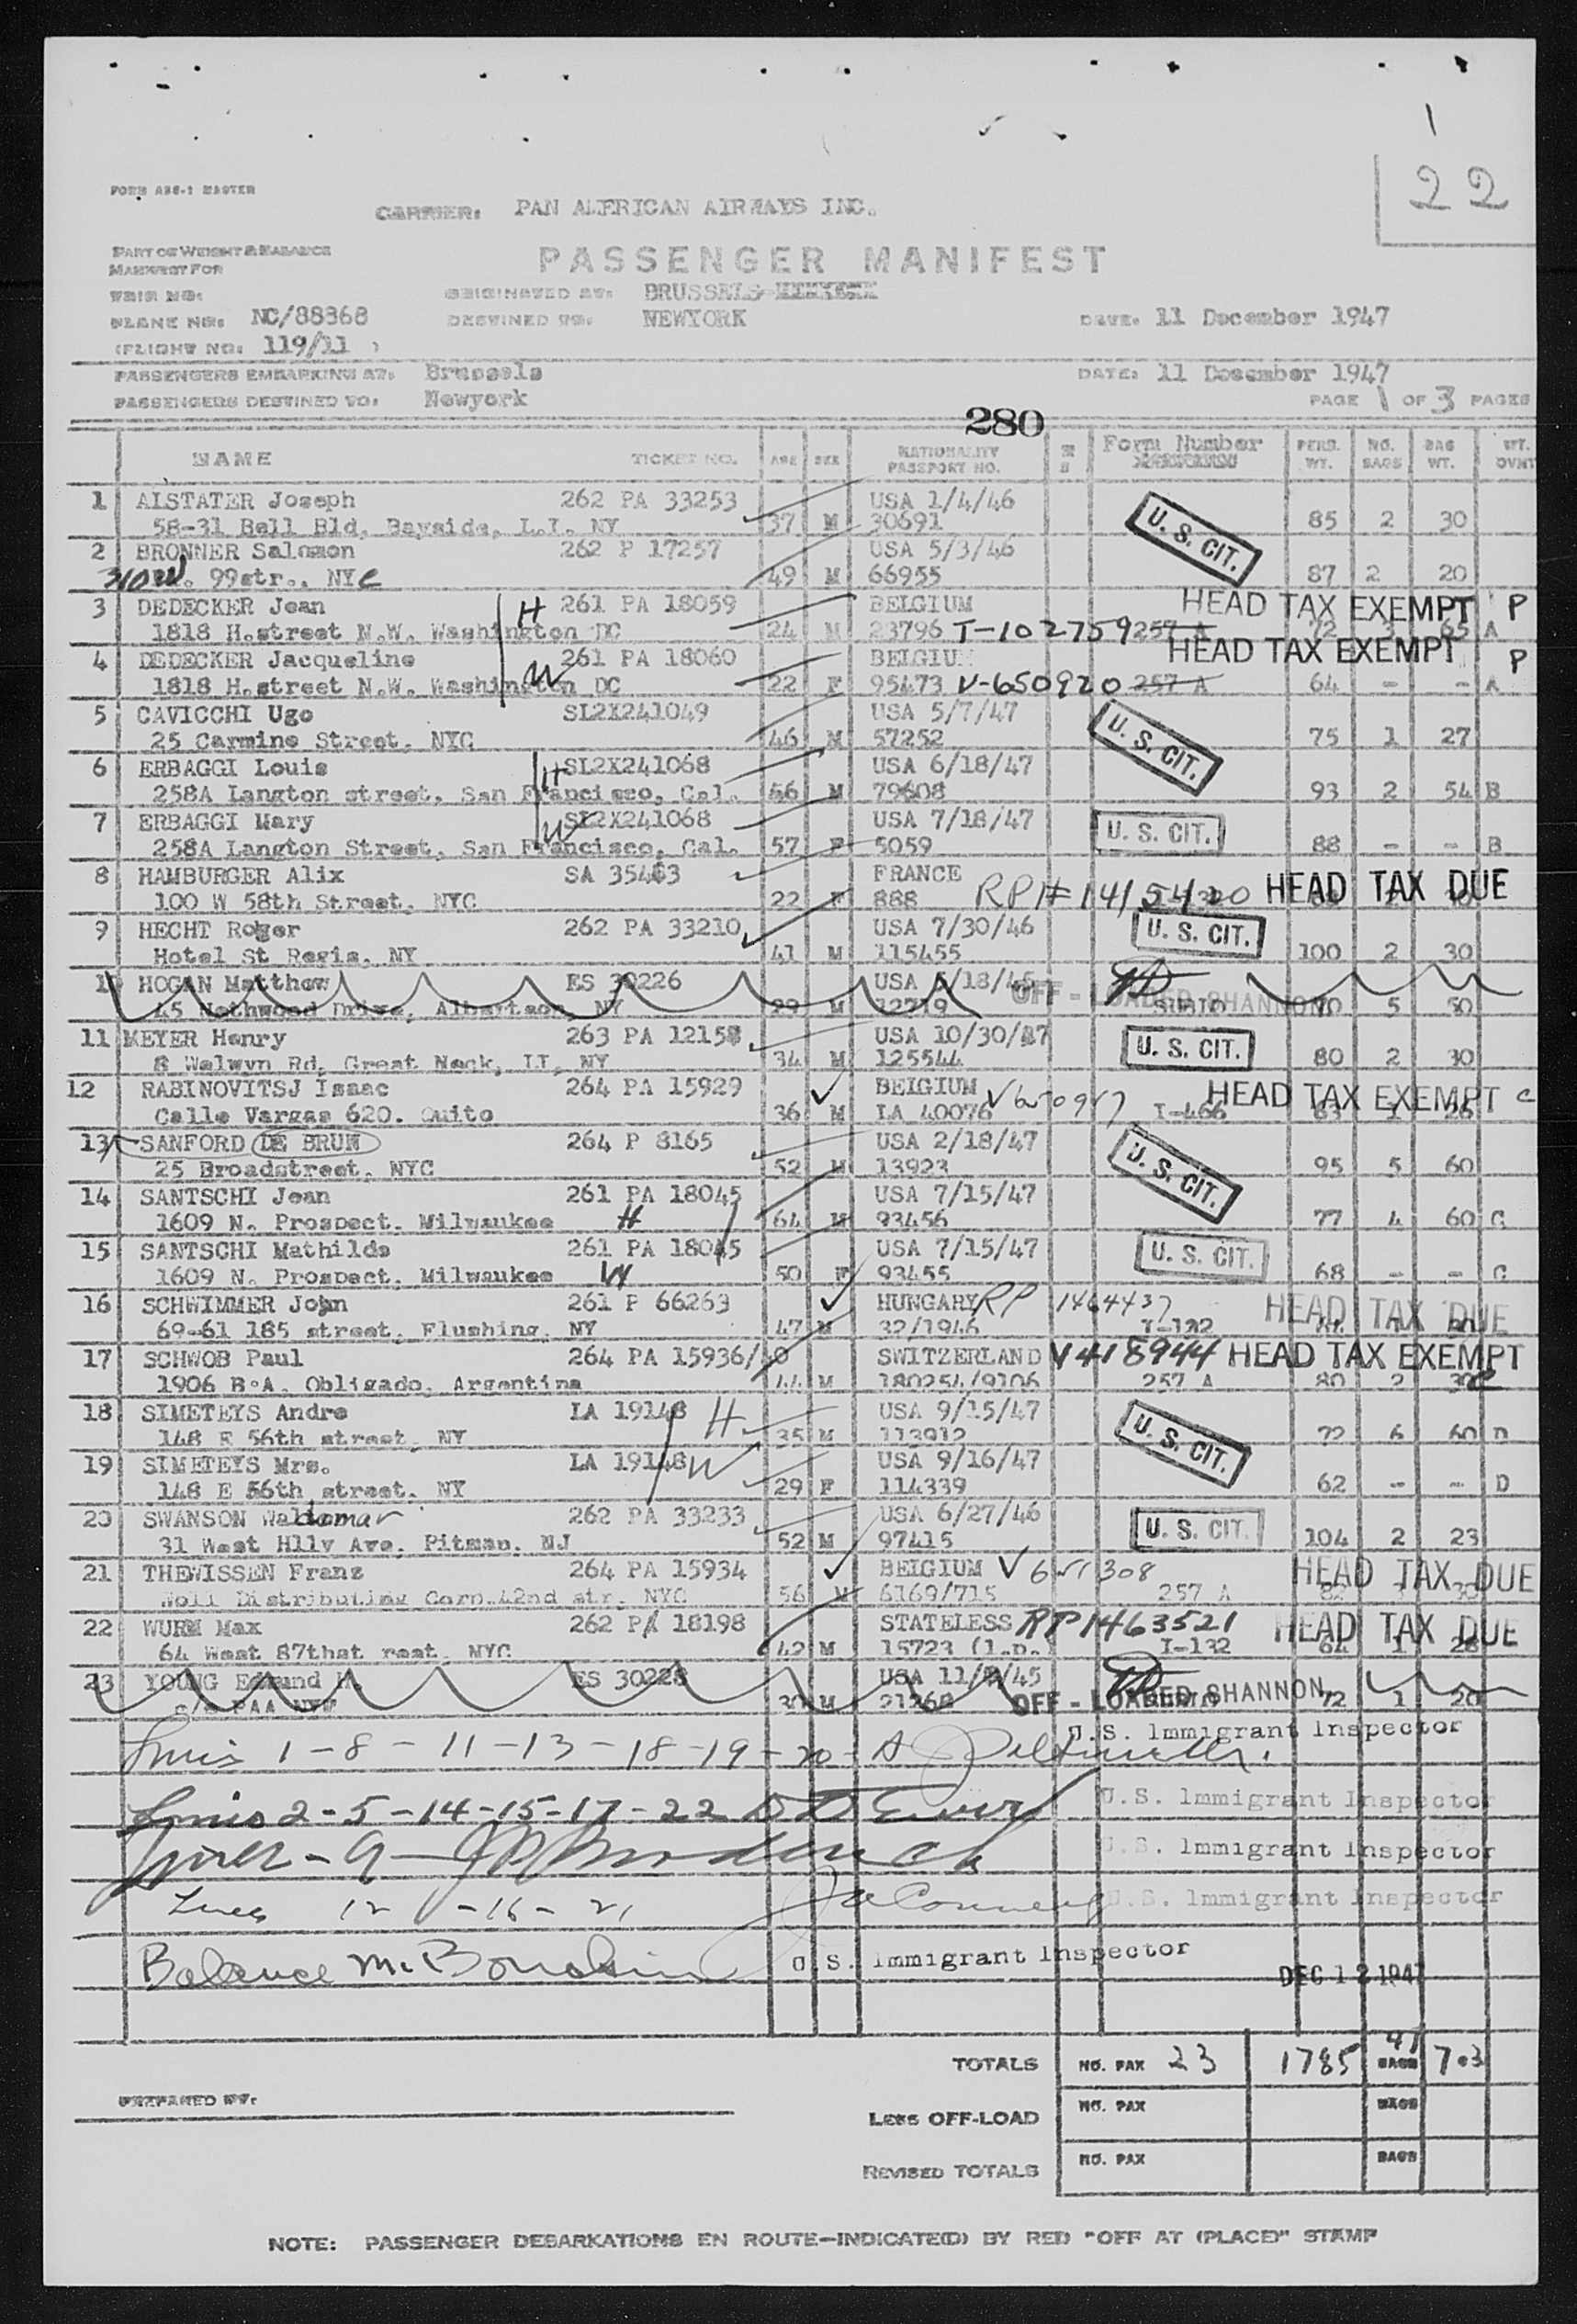 1
22
FORM ABS-1 MASTER
CARRIER: PAN AMERICAN AIRWAYS INC.
PART OF WEIGHT & BALANCE
MANIFEST FOR
PASSENGER MANIFEST
TRIP NO:
ORIGINATED AT: BRUSSELS
PLANE NO: NC/88368
DESTINED TO: NEWYORK
DATE: 11 December 1947
(FLIGHT NO: 119/11 )
PASSENGERS EMBARKING AT: Brussels
DATE: 11 December 1947
PASSENGERS DESTINED TO: Newyork
PAGE 1 OF 3 PAGES
280
NAME TICKET NO. AGE SEX NATIONALITY PASSPORT NO. Form Number PERS. WT. NO. BAGS BAG WT. WT. OVNT
1 ALSTATER Joseph 262 PA 33253 USA 1/4/46
58-31 Bell Bld, Bayside, L.I. NY 37 M 30691 U. S. CIT. 85 2 30
2 BRONNER Salomon 262 P 17257 USA 5/3/46
99str., NYC 49 M 66955 87 2 20
3 DEDECKER Jean H 261 PA 18059 BELGIUM HEAD TAX EXEMPT P
1818 H.street N.W. Washington DC 24 M 23796 T-102759 257 A 72 3 65 A
4 DEDECKER Jacqueline W 261 PA 18060 BELGIUM HEAD TAX EXEMPT P
1818 H.street N.W. Washington DC 22 F 95473 V-650920 257 A 64 - - A
5 CAVICCHI Ugo SL2X241049 USA 5/7/47
25 Carmine Street, NYC 46 M 57252 U. S. CIT. 75 1 27
6 ERBAGGI Louis H SL2X241068 USA 6/18/47
258A Langton street, San Francisco, Cal. 56 M 79608 93 2 54 B
7 ERBAGGI Mary W SL2X241068 USA 7/18/47
258A Langton Street, San Francisco, Cal. 57 F 5059 U. S. CIT. 88 - - B
8 HAMBURGER Alix SA 35403 FRANCE
100 W 58th Street, NYC 22 F 888 RP1# 1415420 HEAD TAX DUE
9 HECHT Roger 262 PA 33210 USA 7/30/46
Hotel St Regis, NY 41 M 115455 U. S. CIT. 100 2 30
10 HOGAN Matthew ES 30226 USA 5/18/45
45 Nothwood Drive, Albertson, NY 29 M 12719 OFF - LOADED SHANNON 70 5 50
11 MEYER Henry 263 PA 12158 USA 10/30/47
8 Welwyn Rd, Great Neck, LI, NY 34 M 125544 U. S. CIT. 80 2 30
12 RABINOVITSJ Isaac 264 PA 15929 BELGIUM HEAD TAX EXEMPT C
Calle Vargas 620. Quito 36 M LA 40076 V650917 I-466 63
13 SANFORD DE BRUN 264 P 8165 USA 2/18/47
25 Broadstreet, NYC 52 M 13923 U. S. CIT. 95 5 60
14 SANTSCHI Jean 261 PA 18045 USA 7/15/47
1609 N. Prospect. Milwaukee H 64 M 93456 77 4 60 C
15 SANTSCHI Mathilde 261 PA 18045 USA 7/15/47
1609 N. Prospect. Milwaukee W 50 F 93455 U. S. CIT. 68 - - C
16 SCHWIMMER John 261 P 66263 HUNGARY RP 1464437 HEAD TAX DUE
69-61 185 street, Flushing, NY 47 M 32/1946 I-132
17 SCHWOB Paul 264 PA 15936/40 SWITZERLAND V418944 HEAD TAX EXEMPT
1906 B.A. Obligado, Argentina 44 M 180254/9106 257 A 80 2 30 C
18 SIMETEYS Andre LA 19148 H USA 9/15/47
148 E 56th street, NY 35 M 113912 U. S. CIT. 72 6 60 D
19 SIMETEYS Mrs. LA 19148 W USA 9/16/47
148 E 56th street, NY 29 F 114339 62 - - D
20 SWANSON Waldemar 262 PA 33233 USA 6/27/46
31 West Hlly Ave. Pitman. NJ 52 M 97415 U. S. CIT. 104 2 23
21 THEWISSEN Frans 264 PA 15934 BELGIUM V 651308 HEAD TAX DUE
Noll Distributing Corp.42nd str. NYC 56 M 6169/715 257 A 82
22 WURM Max 262 PA 18198 STATELESS RP1463521 HEAD TAX DUE
64 West 87that reet. NYC 42 M 15723 (1.p. I-132 64 1 28
23 YOUNG Edmund ES 30228 USA 11/5/45
c/o PAA NYC 30 M 21268 OFF - LOADED SHANNON 72 1 20
Lines 1-8-11-13-18-19-20- U.S. Immigrant Inspector
Lines 2-5-14-15-17-22 U.S. Immigrant Inspector
Lines - 9 - U.S. Immigrant Inspector
Lines 12 -16-21 U.S. Immigrant Inspector
Balance U.S. Immigrant Inspector
DEC 12 1947
TOTALS NO. PAX 23 1785 41 BAGS 703
PREPARED BY:
LESS OFF-LOAD NO. PAX BAGS
REVISED TOTALS NO. PAX BAGS
NOTE: PASSENGER DEBARKATIONS EN ROUTE—INDICATE(D) BY RED "OFF AT (PLACE)" STAMP